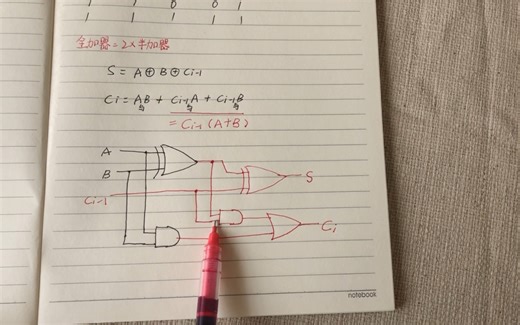 1 1 0 0 1
1 1 1 1 1
全加器=2×半加器
S = A⊕B⊕Ci-1
Ci = AB + Ci-1A + Ci-1B
= Ci-1 (A+B)
A
B
S
Ci-1
Ci
notebook